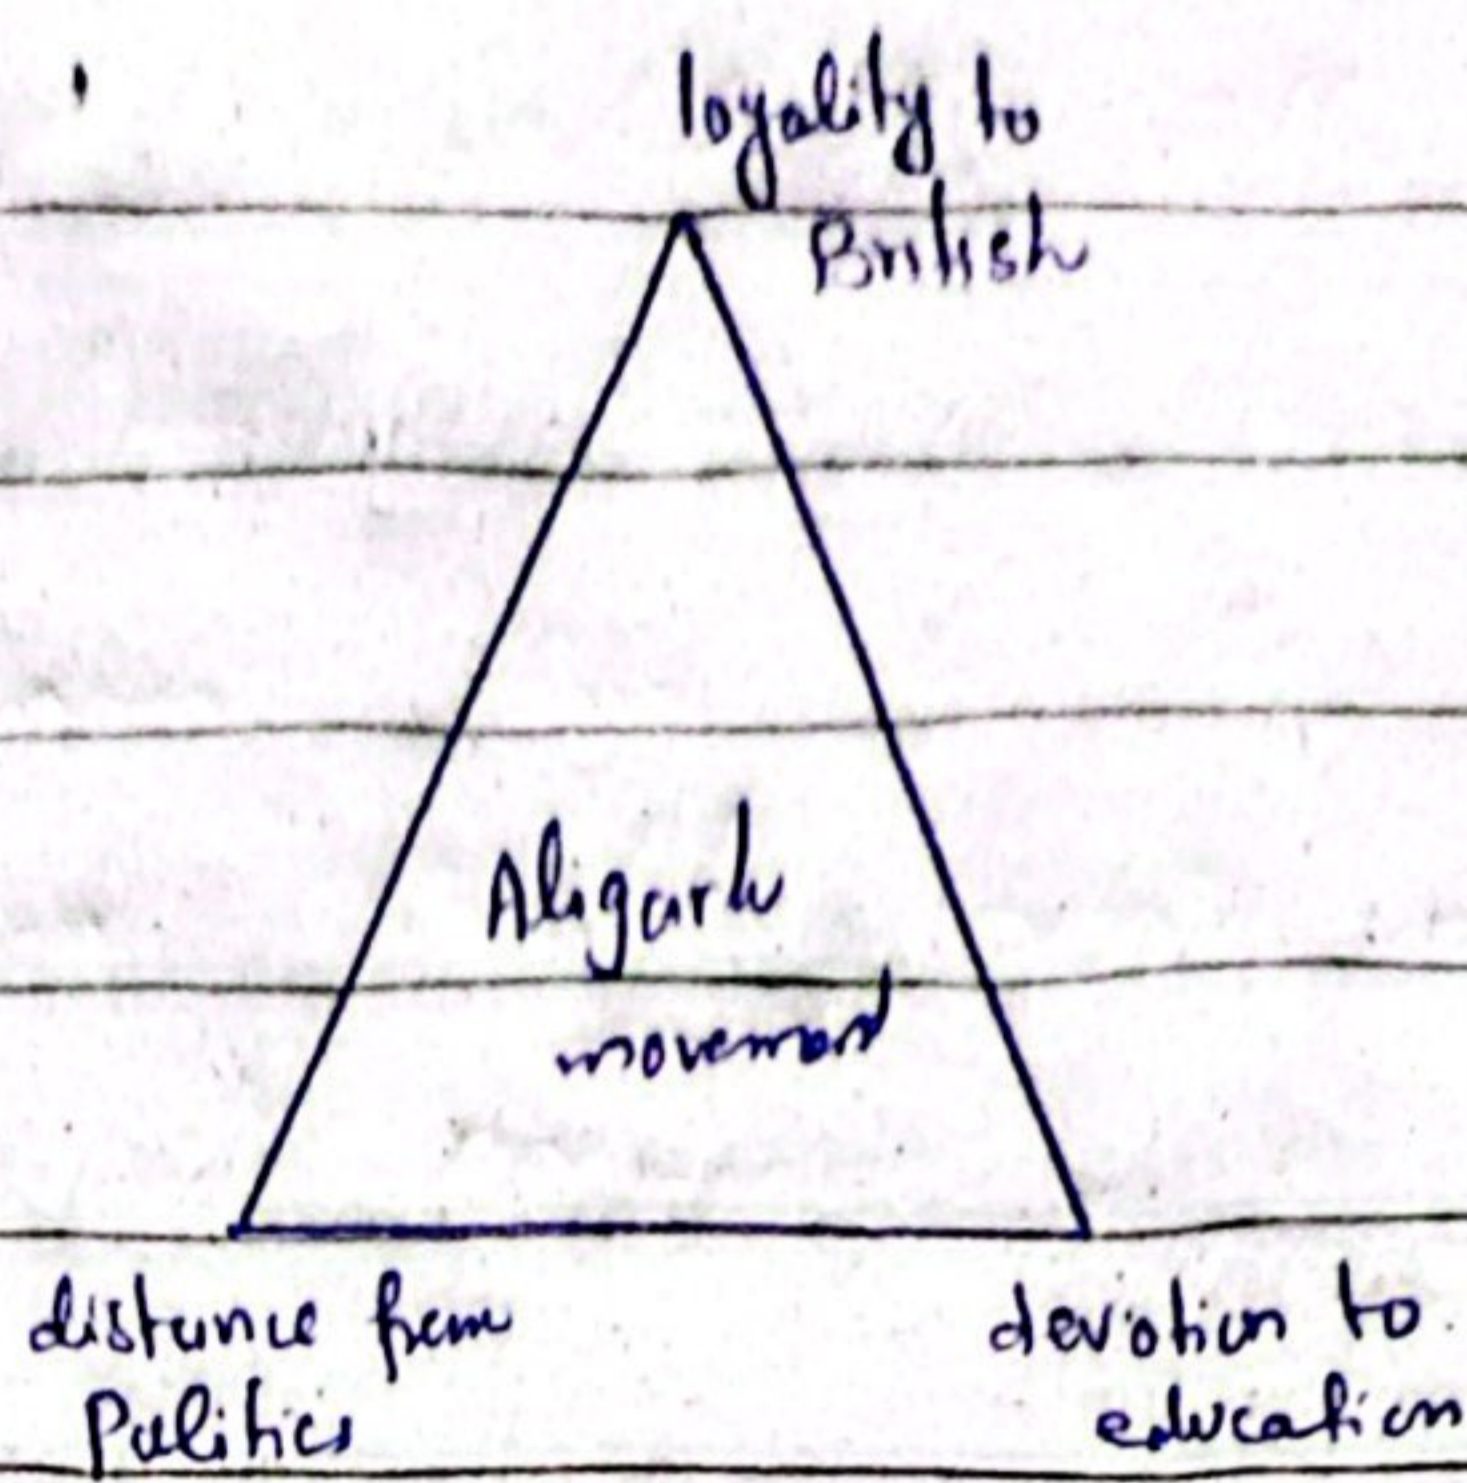 loyality to
British
Aligarh
movement
distance from
Politics
devotion to
education